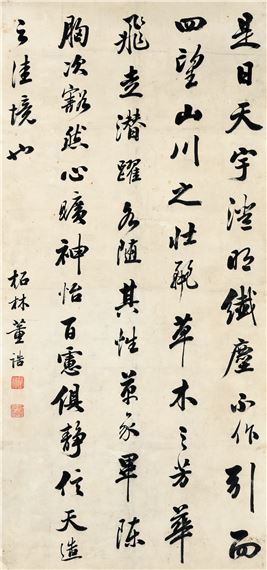 是日天宇澄明纖塵不作引而
四望山川之壯麗草木之芳華
飛走潛躍各隨其性萬象畢陳
胸次豁然心曠神怡百慮俱靜信天造
之佳境也
柘林董誥